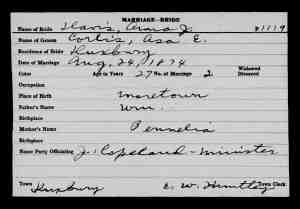 MARRIAGE-BRIDE
Name of Bride Davis, J. #1119
Name of Groom Cortis, Asa E.
Residence of Bride Duxbury
Date of Marriage Aug. 24, 1874
Color Age in Years 27 No. of Marriage 2 Widowed Divorced
Occupation
Place of Birth Moretown
Father's Name Wm.
Birthplace
Mother's Name Permelia
Birthplace
Name Party Officiating J. Copeland - Minister
Town Duxbury E. W. Huntley Town Clerk